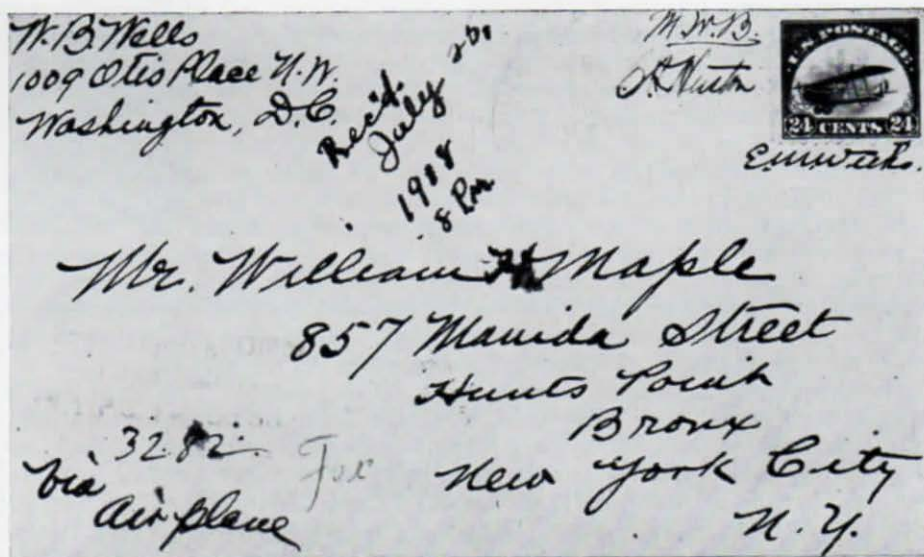 W. B. Wells
1009 Otis Place N.W.
Washington, D.C.
Rec'd.
July
1918
8 P.M.
M.W.B.
U.S. POSTAGE
24 CENTS 24
E.M. Weeks.
Mr. William H Maple
857 Manida Street
Hunts Point
Bronx
New York City
N.Y.
3282
Fox
Via
Airplane